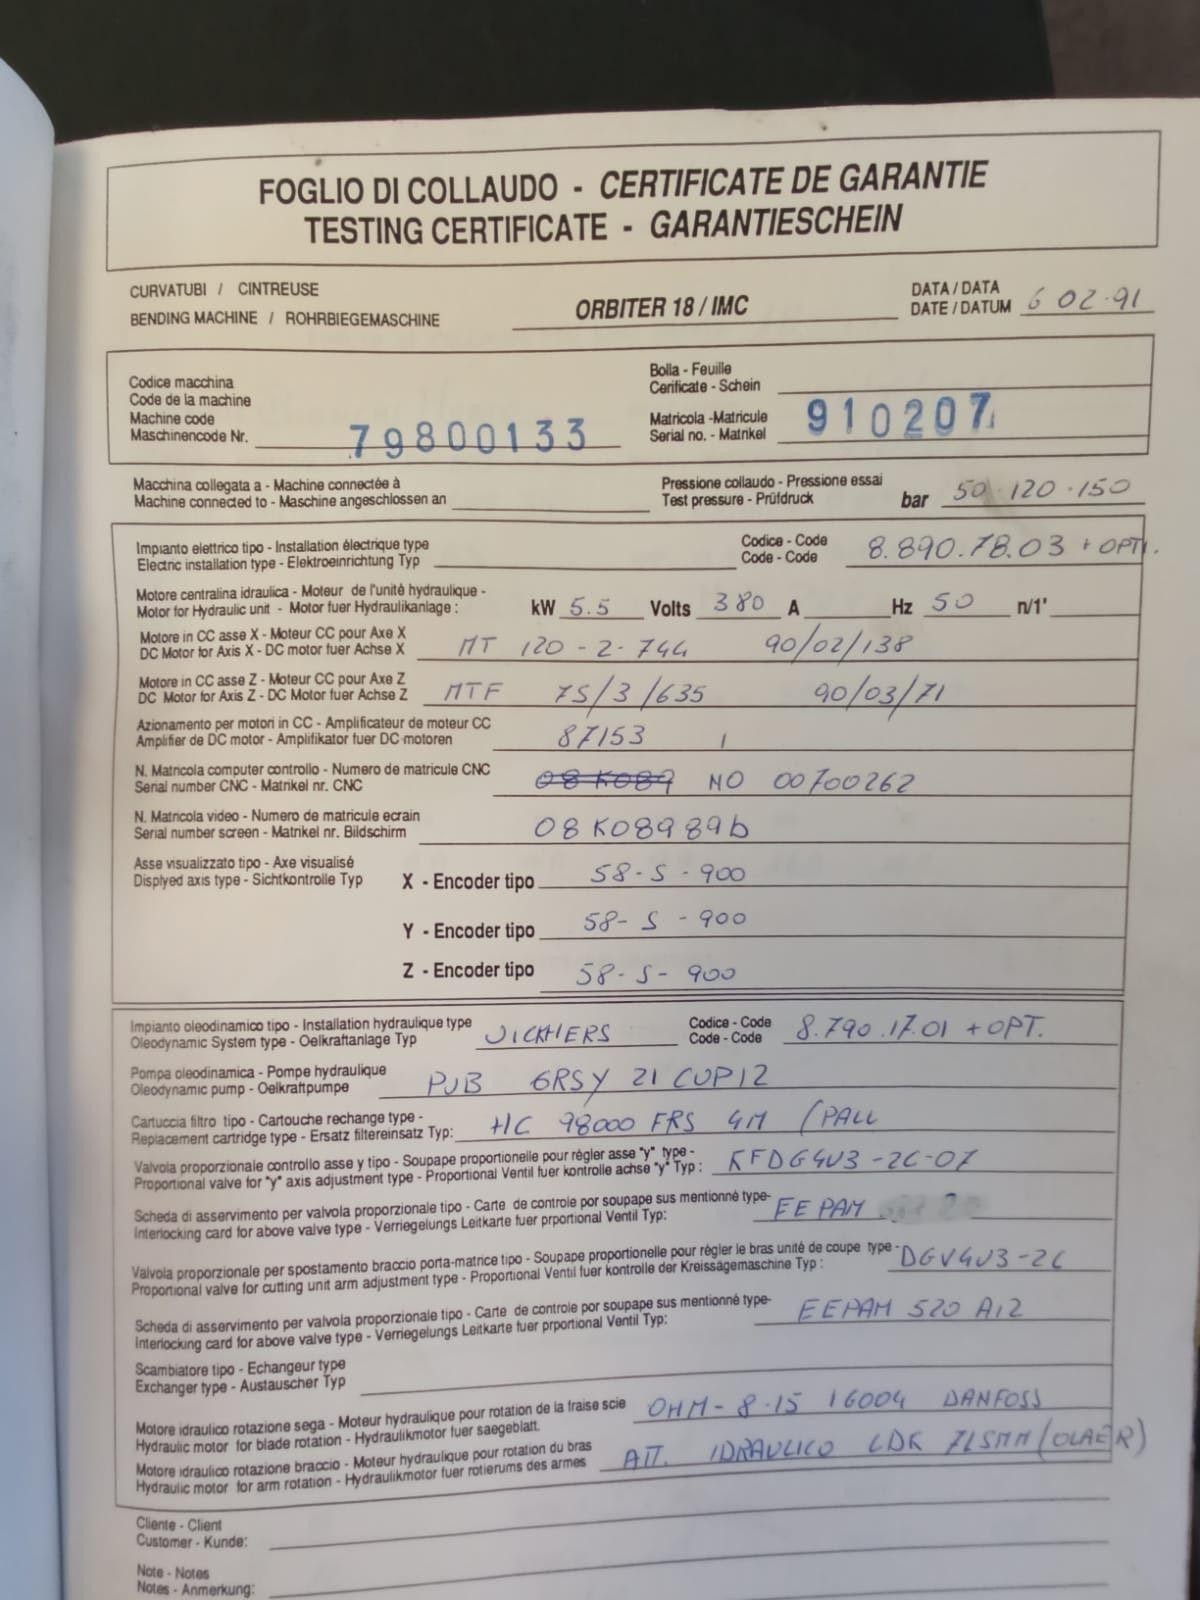 FOGLIO DI COLLAUDO - CERTIFICATE DE GARANTIE
TESTING CERTIFICATE - GARANTIESCHEIN
CURVATUBI / CINTREUSE
BENDING MACHINE / ROHRBIEGEMASCHINE
ORBITER 18 / IMC
DATA / DATA
DATE / DATUM 6 02.91
Codice macchina
Code de la machine
Machine code
Maschinencode Nr. 79800133
Bolla - Feuille
Cerificate - Schein
Matricola -Matricule
Serial no. - Matrikel 910207
Macchina collegata a - Machine connectée à
Machine connected to - Maschine angeschlossen an
Pressione collaudo - Pressione essai
Test pressure - Prüfdruck bar 50.120.150
Impianto elettrico tipo - Installation électrique type
Electric installation type - Elektroeinrichtung Typ
Codice - Code
Code - Code 8.890.78.03 + OPT.
Motore centralina idraulica - Moteur de l'unité hydraulique -
Motor for Hydraulic unit - Motor fuer Hydraulikanlage : kW 5.5 Volts 380 A Hz 50 n/1'
Motore in CC asse X - Moteur CC pour Axe X
DC Motor for Axis X - DC motor fuer Achse X MT 120 - 2 - 744 90/02/138
Motore in CC asse Z - Moteur CC pour Axe Z
DC Motor for Axis Z - DC Motor fuer Achse Z MTF 75/3/635 90/03/71
Azionamento per motori in CC - Amplificateur de moteur CC
Amplifier de DC motor - Amplifikator fuer DC motoren 87153
N. Matricola computer controllo - Numero de matricule CNC
Serial number CNC - Matrikel nr. CNC 08K089 NO 00700262
N. Matricola video - Numero de matricule ecrain
Serial number screen - Matrikel nr. Bildschirm 08K08989b
Asse visualizzato tipo - Axe visualisé
Displyed axis type - Sichtkontrolle Typ
X - Encoder tipo 58-S-900
Y - Encoder tipo 58-S-900
Z - Encoder tipo 58-S-900
Impianto oleodinamico tipo - Installation hydraulique type
Oleodynamic System type - Oelkraftanlage Typ VICKHERS
Codice - Code
Code - Code 8.790.17.01 + OPT.
Pompa oleodinamica - Pompe hydraulique
Oleodynamic pump - Oelkraftpumpe PVB 6RSY 21 CVP12
Cartuccia filtro tipo - Cartouche rechange type -
Replacement cartridge type - Ersatz filtereinsatz Typ: HC 98000 FRS 4M (PALL
Valvola proporzionale controllo asse y tipo - Soupape proportionelle pour règler asse "y" type -
Proportional valve for "y" axis adjustment type - Proportional Ventil fuer kontrolle achse "y" Typ : KFDG4V3-2C-07
Scheda di asservimento per valvola proporzionale tipo - Carte de controle por soupape sus mentionné type-
Interlocking card for above valve type - Verriegelungs Leitkarte fuer prportional Ventil Typ: EEPAM
Valvola proporzionale per spostamento braccio porta-matrice tipo - Soupape proportionelle pour régler le bras unité de coupe type -
Proportional valve for cutting unit arm adjustment type - Proportional Ventil fuer kontrolle der Kreissägemaschine Typ : DGV4V3-2C
Scheda di asservimento per valvola proporzionale tipo - Carte de controle por soupape sus mentionné type-
Interlocking card for above valve type - Verriegelungs Leitkarte fuer prportional Ventil Typ: EEPAM 520 A12
Scambiatore tipo - Echangeur type
Exchanger type - Austauscher Typ
Motore idraulico rotazione sega - Moteur hydraulique pour rotation de la fraise scie
Hydraulic motor for blade rotation - Hydraulikmotor fuer saegeblatt. OMM-8-15 16004 DANFOSS
Motore idraulico rotazione braccio - Moteur hydraulique pour rotation du bras
Hydraulic motor for arm rotation - Hydraulikmotor fuer rotierums des armes ATT. IDRAULICO LDK 71SMM (OLAER)
Cliente - Client
Customer - Kunde:
Note - Notes
Notes - Anmerkung: